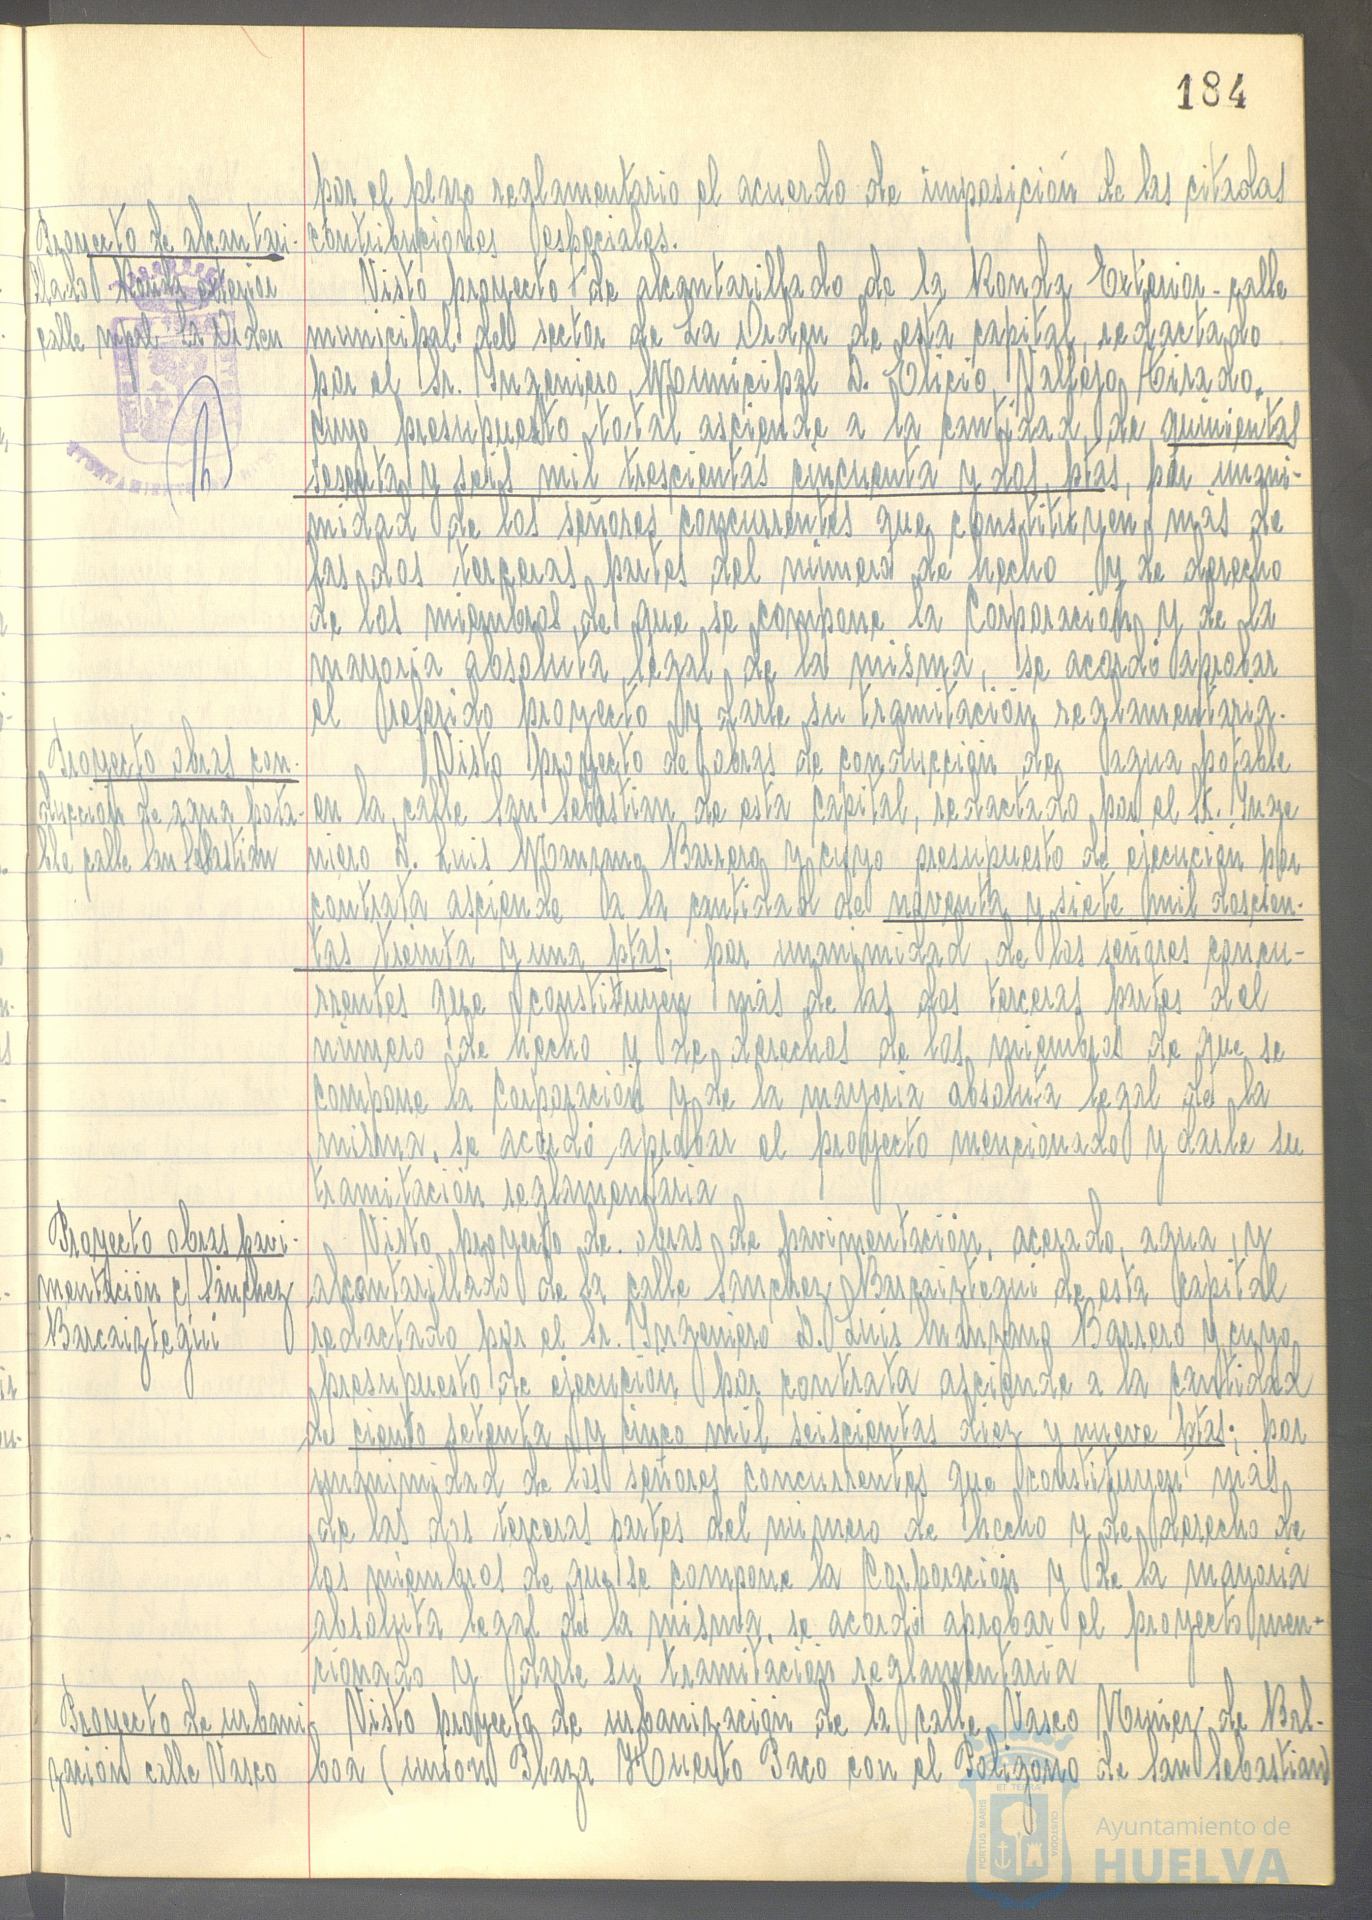 184
por el plazo reglamentario el acuerdo de imposición de las citadas
contribuciones especiales.
Proyecto de alcantari-
llado Ronda exterior
calle mpal La Orden
Visto proyecto de alcantarillado de la Ronda Exterior - calle
municipal del sector de La Orden de esta capital, redactado
por el Sr. Ingeniero Municipal D. Elicio Vallejo Tirado,
cuyo presupuesto total asciende a la cantidad de quinientas
sesenta y seis mil trescientas cincuenta y dos ptas, por unani-
midad de los señores concurrentes que constituyen más de
las dos terceras partes del número de hecho y de derecho
de los miembros de que se compone la Corporación y de la
mayoría absoluta legal de la misma, se acordó aprobar
el referido proyecto y darle su tramitación reglamentaria.
Proyecto obras con-
ducción de agua pota-
ble calle San Sebastián
Visto proyecto de obras de conducción de agua potable
en la calle San Sebastian de esta capital, redactado por el Sr. Inge
niero D. Luis Manzano Barrero y cuyo presupuesto de ejecución por
contrata asciende a la cantidad de noventa y siete mil doscien-
tas treinta y una ptas; por unanimidad de los señores concu-
rrentes que constituyen más de las dos terceras partes del
número de hecho y de derechos de los miembros de que se
compone la Corporación y de la mayoría absoluta legal de la
misma, se acordó aprobar el proyecto mencionado y darle su
tramitación reglamentaria
Proyecto obras pavi-
mentación c/ Sánchez
Barcaiztegui
Visto proyecto de obras de pavimentación, acerado, agua, y
alcantarillado de la calle Sanchez Barcaiztegui de esta capital
redactado por el Sr. Ingeniero D. Luis Manzano Barrero y cuyo
presupuesto de ejecución por contrata asciende a la cantidad
de ciento setenta y cinco mil seiscientas diez y nueve ptas; por
unanimidad de los señores concurrentes que constituyen más
de las dos terceras partes del número de hecho y de derecho de
los miembros de que se compone la Corporación y de la mayoría
absoluta legal de la misma, se acordó aprobar el proyecto men-
cionado y darle su tramitación reglamentaria
Proyecto de urbani
zación calle Vasco
Visto proyecto de urbanización de la calle Vasco Nuñez de Bal-
boa (unión Plaza Huerto Paco con el Poligono de San Sebastian)
PORTUS MARIS
ET TERRAE
CUSTODIA
Ayuntamiento de
HUELVA